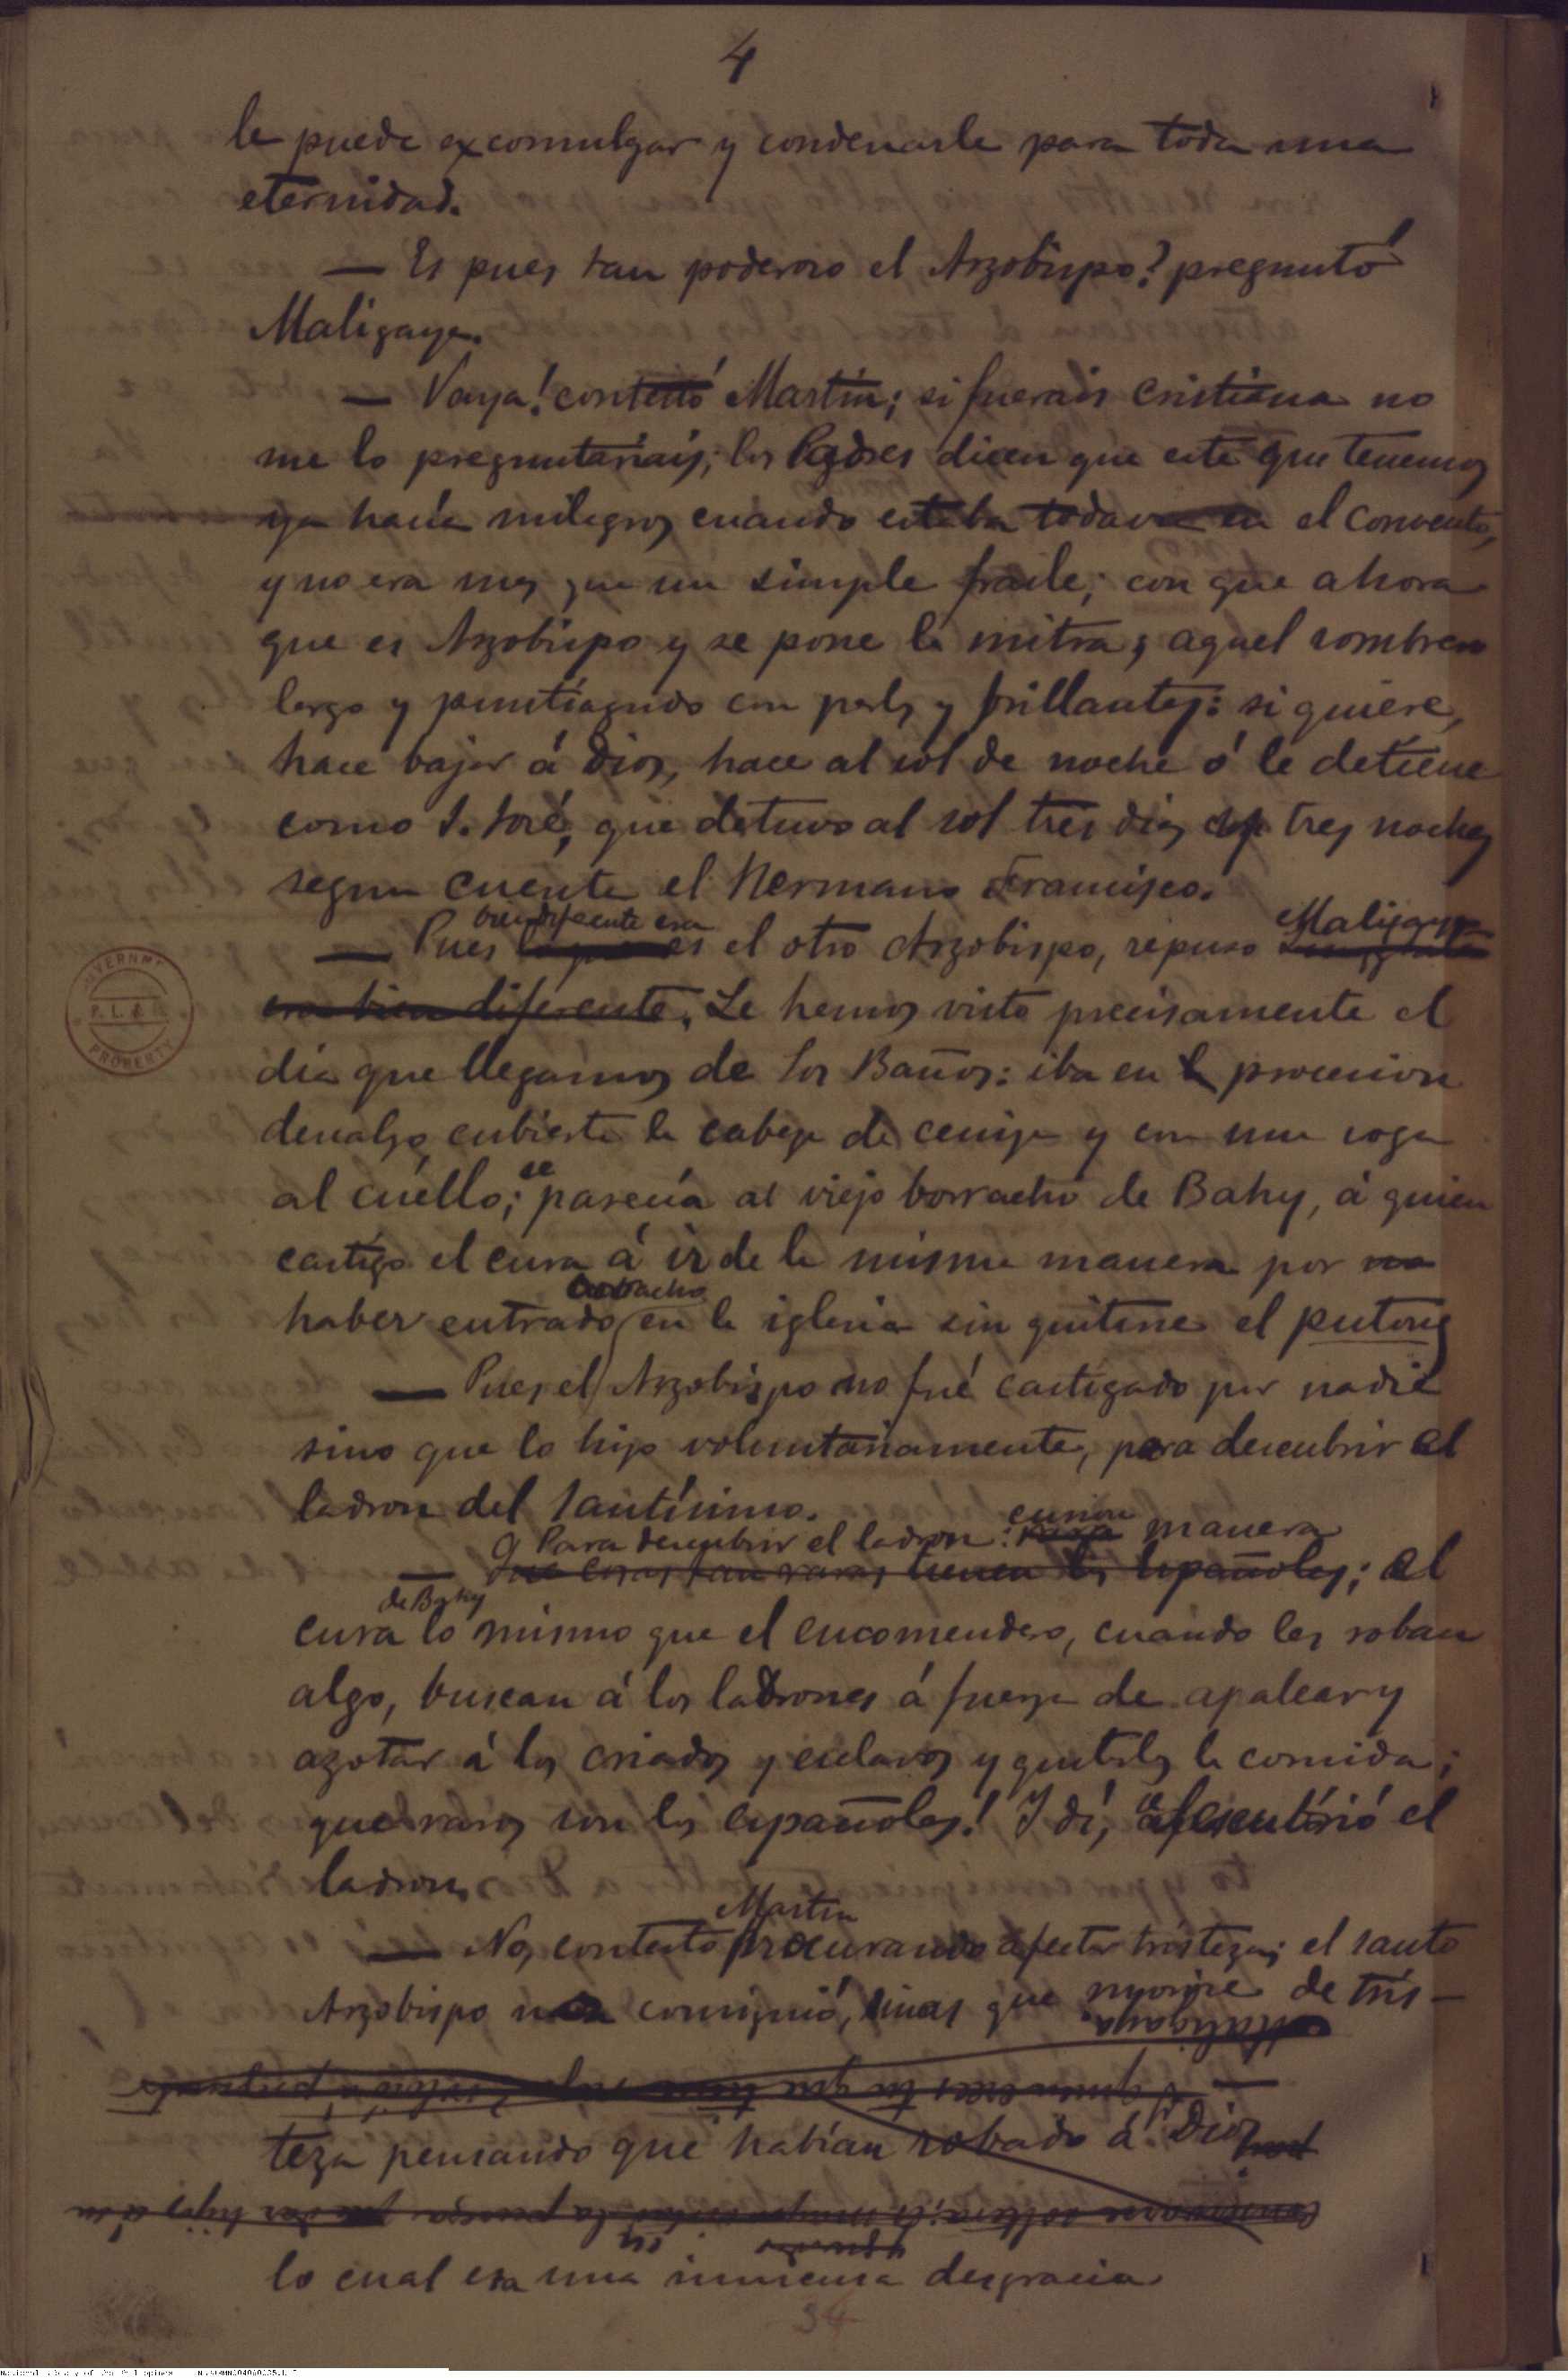 4
le puede excomulgar y condenarle para toda una
eternidad.
— Es pues tan poderoso el Arzobispo? preguntó
Maligaya.
— Vaya! contestó Martin; si fuerais cristiana no
me lo preguntariais; los Padres dicen que este que tenemos
ya hacía milagros cuando estaba todavia en el convento,
y no era mas que un simple fraile; con que ahora
que es Arzobispo y se pone la mitra, aquel sombrero
largo y puntiagudo con perlas y brillantes: si quiere,
hace bajar á Dios, hace al sol de noche ó le detiene
como S. José, que detuvo al sol tres dias tres noches
segun cuenta el Hermano Francisco.
bien diferente era Maligaya
— Pues es el otro Arzobispo, repuso
era bien diferente. Le hemos visto precisamente el
dia que llegamos de Los Baños: iba en la procesion
descalzo, cubierta la cabeza de ceniza y con una soga
al cuello; se parecía al viejo borracho de Bahy, á quien
castigó el cura á ir de la misma manera por no
borracho
haber entrado en la iglesia sin quitarse el putong
— Pues el Arzobispo no fué castigado por nadie
sino que lo hizo voluntariamente, para descubrir al
ladron del Santísimo.
Para descubrir el ladron: curiosa manera
— Que cosas tan raras tienen los Españoles; el
de Bahy
cura lo mismo que el encomendero, cuando les roban
algo, buscan á los ladrones á fuerza de apalear y
azotar á los criados y esclavos y quitarles la comida;
que raros son los españoles! Y dí, descubrió el
ladron,
Martin
— No, contestó procurando afectar tristeza; el santo
Arzobispo no consiguió, sinas que murióse de tris-
Maligaya
teza pensando que habían robado á Dios
lo cual era una inmensa desgracia
34
GOVERNMENT
P.L.& M.
PROPERTY